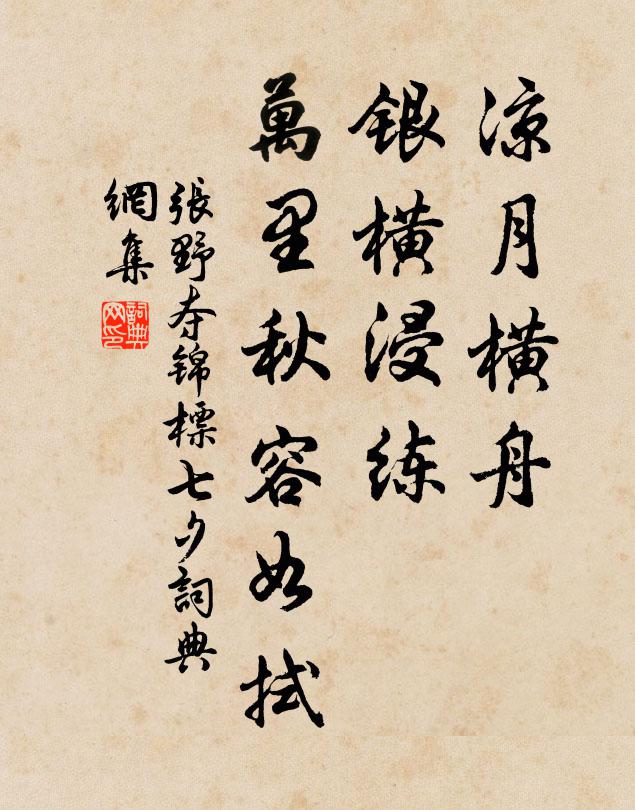 凉月横舟
银横浸练
萬里秋容如拭
張野夺锦標七夕詞典
網集
詞典
网印